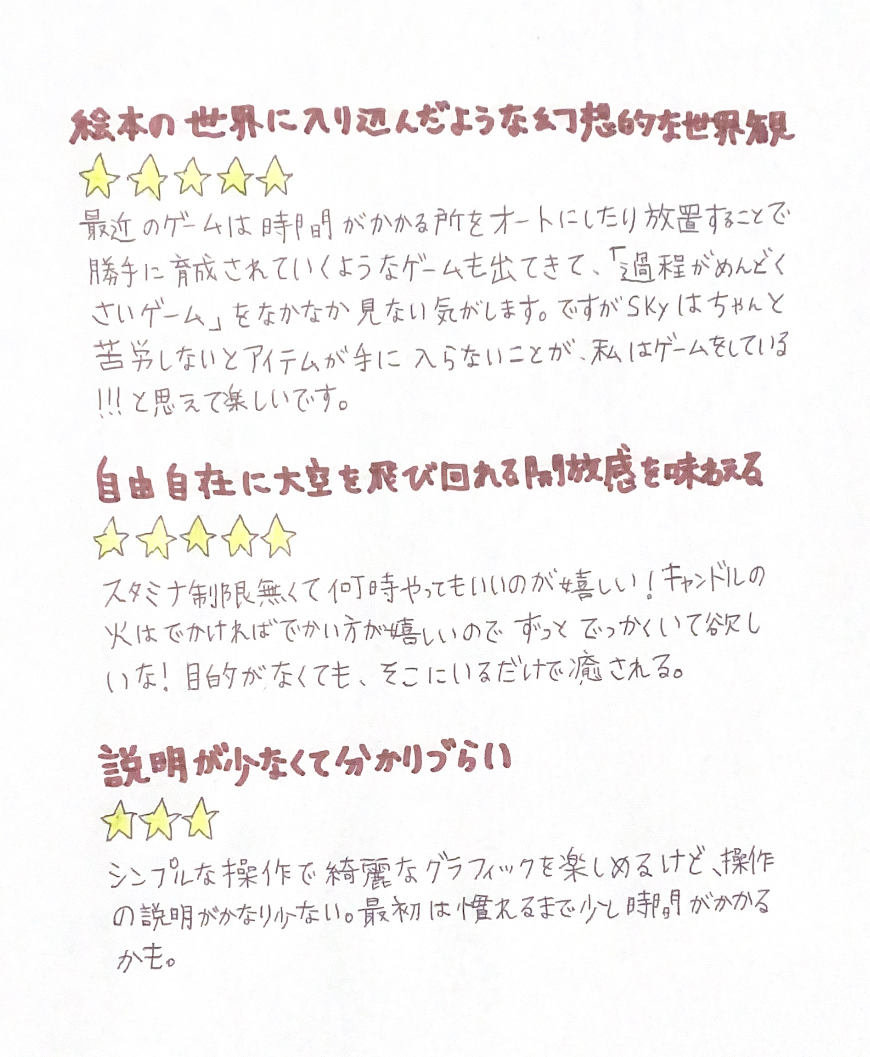 絵本の世界に入り込んだような幻想的な世界観
最近のゲームは時間がかかる所をオートにしたり放置することで
勝手に育成されていくようなゲームも出てきて、「過程がめんどく
さいゲーム」をなかなか見ない気がします。ですがSkyはちゃんと
苦労しないとアイテムが手に入らないことが、私はゲームをしている
!!!と思えて楽しいです。
自由自在に大空を飛び回れる開放感を味わえる
スタミナ制限無くて何時やってもいいのが嬉しい!キャンドルの
火はでかければでかい方が嬉しいのでずっとでっかくいて欲し
いな!目的がなくても、そこにいるだけで癒される。
説明が少なくて分かりづらい
シンプルな操作で綺麗なグラフィックを楽しめるけど、操作
の説明がかなり少ない。最初は慣れるまで少し時間がかかる
かも。